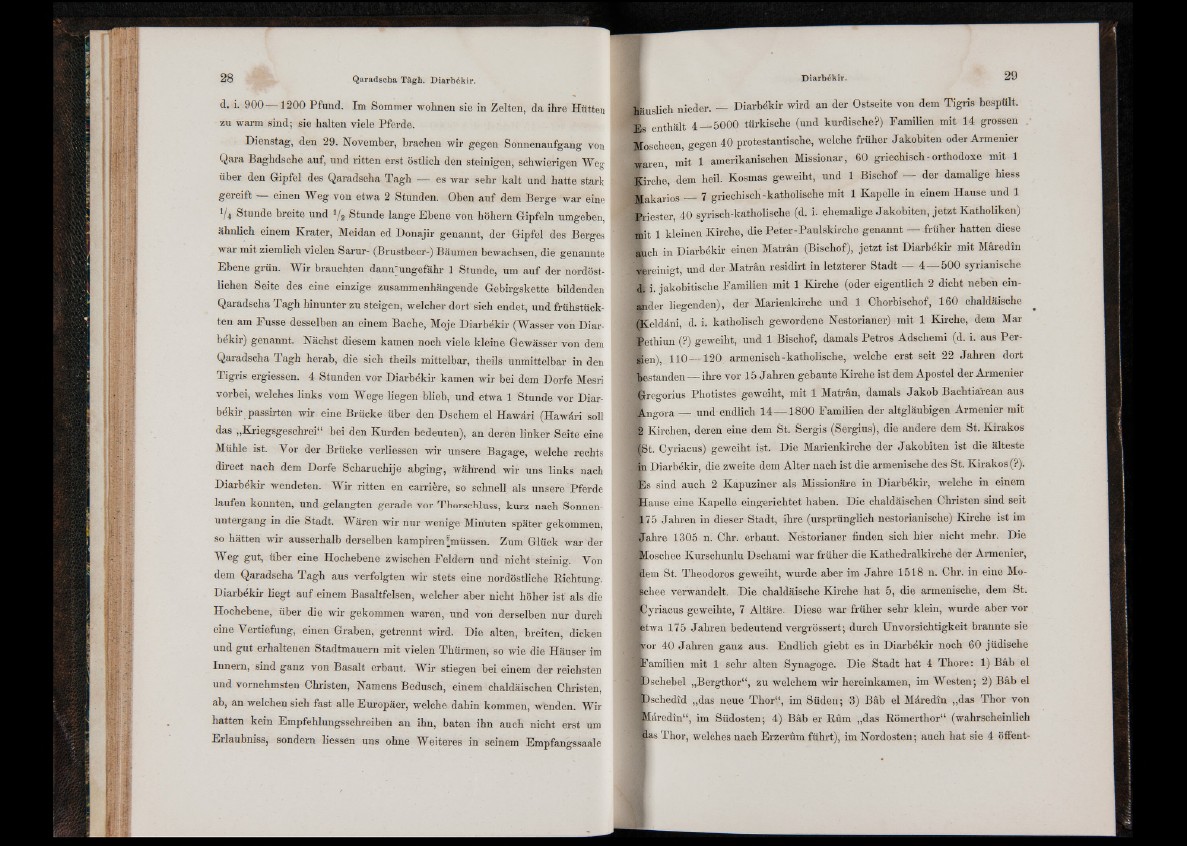 28
Qaradscha Tâgh. Diarbékir.
d. i. 900—1200 Pfund. Im Sommer wohnen sie in Zelten, da ihre Hütten
zu warm sind; sie halten viele Pferde.
Dienstag, den 29. November, brachen wir gegen Sonnenaufgang von
Qara Baghdsche auf, und ritten erst östlich den steinigen, schwierigen Weg
über den Gipfel des Qaradscha Tagh — es war sehr kalt und hatte stark
gereift — einen Weg von etwa 2 Stunden. Oben auf dem Berge war eine
1/4 Stunde breite und 1/2 Stunde lange Ebene von höhern Gipfeln umgeben,
ähnlich einem Krater, Meidan ed Donajir genannt, der Gipfel des Berges
war mit ziemlich vielen Sarur- (Brustbeer-) Bäumen bewachsen, die genannte
Ebene grün. Wir brauchten dann ungefähr 1 Stunde, um auf der nordöst-
lichen Seite des eine einzige zusammenhängende Gebirgskette bildenden
Qaradscha Tagh hinunter zu steigen, welcher dort sich endet, und frühstück-
ten am Fusse desselben an einem Bache, Moje Diarbékir (Wasser von Diar-
békir) genannt. Nächst diesem kamen noch viele kleine Gewässer von dem
Qaradscha Tagh herab, die sich theils mittelbar, theils unmittelbar in den
Tigris ergiessen. 4 Stunden vor Diarbékir kamen wir bei dem Dorfe Mesri
vorbei, welches links vom Wege liegen blieb, und etwa 1 Stunde vor Diar-
békir passirten wir eine Brücke über den Dschem el Hawári (Hawári soll
das „Kriegsgeschrei“ bei den Kurden bedeuten), an deren linker Seite eine
Mühle ist. Vor der Brücke verliessen wir unsere Bagage, welche rechts
direct nach dem Dorfe Scharuchije abging, während wir uns links nach
Diarbékir wendeten. Wir ritten en carrière, so schnell als unsere Pferde
laufen konnten, und gelangten gerade vor Thorschluss, kurz nach Sonnen-
untergang in die Stadt. Wären wir nur wenige Minuten später gekommen,
so hätten wir ausserhalb derselben kampiren müssen. Zum Glück war der
Weg gut, über eine Hochebene zwischen Feldern und nicht steinig. Von
dem Qaradscha Tagh aus verfolgten wir stets eine nordöstliche Richtung.
Diarbékir liegt auf einem Basaltfelsen, welcher aber nicht höher ist als die
Hochebene, über die wir gekommen waren, und von derselben nur durch
eine Vertiefung, einen Graben, getrennt wird. Die alten, breiten, dicken
und gut erhaltenen Stadtmauern mit vielen Thürmen, so wie die Häuser im
Innern, sind ganz von Basalt erbaut. Wir stiegen bei einem der reichsten
und vornehmsten Christen, Namens Bedusch, einem chaldäischen Christen,
ab, an welchen sich fast alle Europäer, welche dahin kommen, wenden. Wir
hatten kein Empfehlungsschreiben an ihn, baten ihn auch nicht erst um
Erlaubniss, sondern liessen uns ohne Weiteres in seinem Empfangssaale
Diarbékir.
29
häuslich nieder. — Diarbékir wird an der Ostseite von dem Tigris bespült.
Es enthält 4—5000 türkische (und kurdische?) Familien mit 14 grossen
Moscheen, gegen 40 protestantische, welche früher Jakobiten oder Armenier
waren, mit 1 amerikanischen Missionar, 60 griechisch-orthodoxe mit 1
Kirche, dem heil. Kosmas geweiht, und 1 Bischof — der damalige hiess
Makarios — 7 griechisch-katholische mit 1 Kapelle in einem Hause und 1
Priester, 40 syrisch-katholische (d. i. ehemalige Jakobiten, jetzt Katholiken)
mit 1 kleinen Kirche, die Peter-Paulskirche genannt — früher hatten diese
auch in Diarbékir einen Matrân (Bischof), jetzt ist Diarbékir mit Mâredîn
vereinigt, und der Matrân residirt in letzterer Stadt — 4—500 syrianische
d. i. jakobitische Familien mit 1 Kirche (oder eigentlich 2 dicht neben ein-
ander liegenden), der Marienkirche und 1 Chorbischof, 160 chaldäische
(Keldáni, d. i. katholisch gewordene Nestorianer) mit 1 Kirche, dem Mar
Pethiun (?) geweiht, und 1 Bischof, damals Petros Adschemi (d. i. aus Per-
sien), 110—120 armenisch-katholische, welche erst seit 22 Jahren dort
bestanden — ihre vor 15 Jahren gebaute Kirche ist dem Apostel der Armenier
Gregorius Photistes geweiht, mit 1 Matrân, damals Jakob Bachtiarean aus
Angora — und endlich 14—1800 Familien der altgläubigen Armenier mit
2 Kirchen, deren eine dem St. Sergis (Sergius), die andere dem St. Kirakos
(St. Cyriacus) geweiht ist. Die Marienkirche der Jakobiten ist die älteste
in Diarbékir, die zweite dem Alter nach ist die armenische des St. Kirakos (?).
Es sind auch 2 Kapuziner als Missionäre in Diarbékir, welche in einem
Hause eine Kapelle eingerichtet haben. Die chaldäischen Christen sind seit
175 Jahren in dieser Stadt, ihre (ursprünglich nestorianische) Kirche ist im
Jahre 1305 n. Chr. erbaut. Nestorianer finden sich hier nicht mehr. Die
Moschee Kurschunlu Dschami war früher die Kathedralkirche der Armenier,
dem St. Theodoros geweiht, wurde aber im Jahre 1518 n. Chr. in eine Mo-
schee verwandelt. Die chaldäische Kirche hat 5, die armenische, dem St.
Cyriacus geweihte, 7 Altäre. Diese war früher sehr klein, wurde aber vor
etwa 175 Jahren bedeutend vergrössert; durch Unvorsichtigkeit brannte sie
vor 40 Jahren ganz aus. Endlich giebt es in Diarbékir noch 60 jüdische
Familien mit 1 sehr alten Synagoge. Die Stadt hat 4 Thore: 1) Bâb el
Dschebel „Bergthor“, zu welchem wir hereinkamen, im Westen; 2) Bâb el
Dschedîd „das neue Thor“, im Süden; 3) Bâb el Máredîn „das Thor von
Máredîn“, im Südosten; 4) Bâb er Rûm „das Römerthor“ (wahrscheinlich
das Thor, welches nach Erzerûm führt), im Nordosten; auch hat sie 4 öffent-